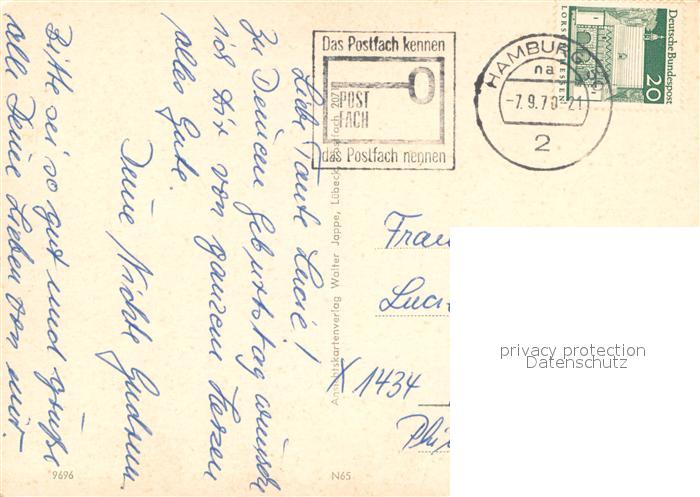 Liebe Tante Lucie!
Zu Deinem Geburtstag wünsche
ich Dir von ganzem Herzen
alles Gute.
Deine Nichte Gudrun.
Bitte sei so gut und grüße
alle Deine Lieben von mir.
Das Postfach kennen
POST
FACH
das Postfach nennen
HAMBURG
na
-7.9.70-21
2
Deutsche Bundespost
20
LORSCH HESSEN
Ansichtskartenverlag Walter Jappe, Lübeck, Postfach 2071
Frau
X 1434
9696
N65
privacy protection
Datenschutz